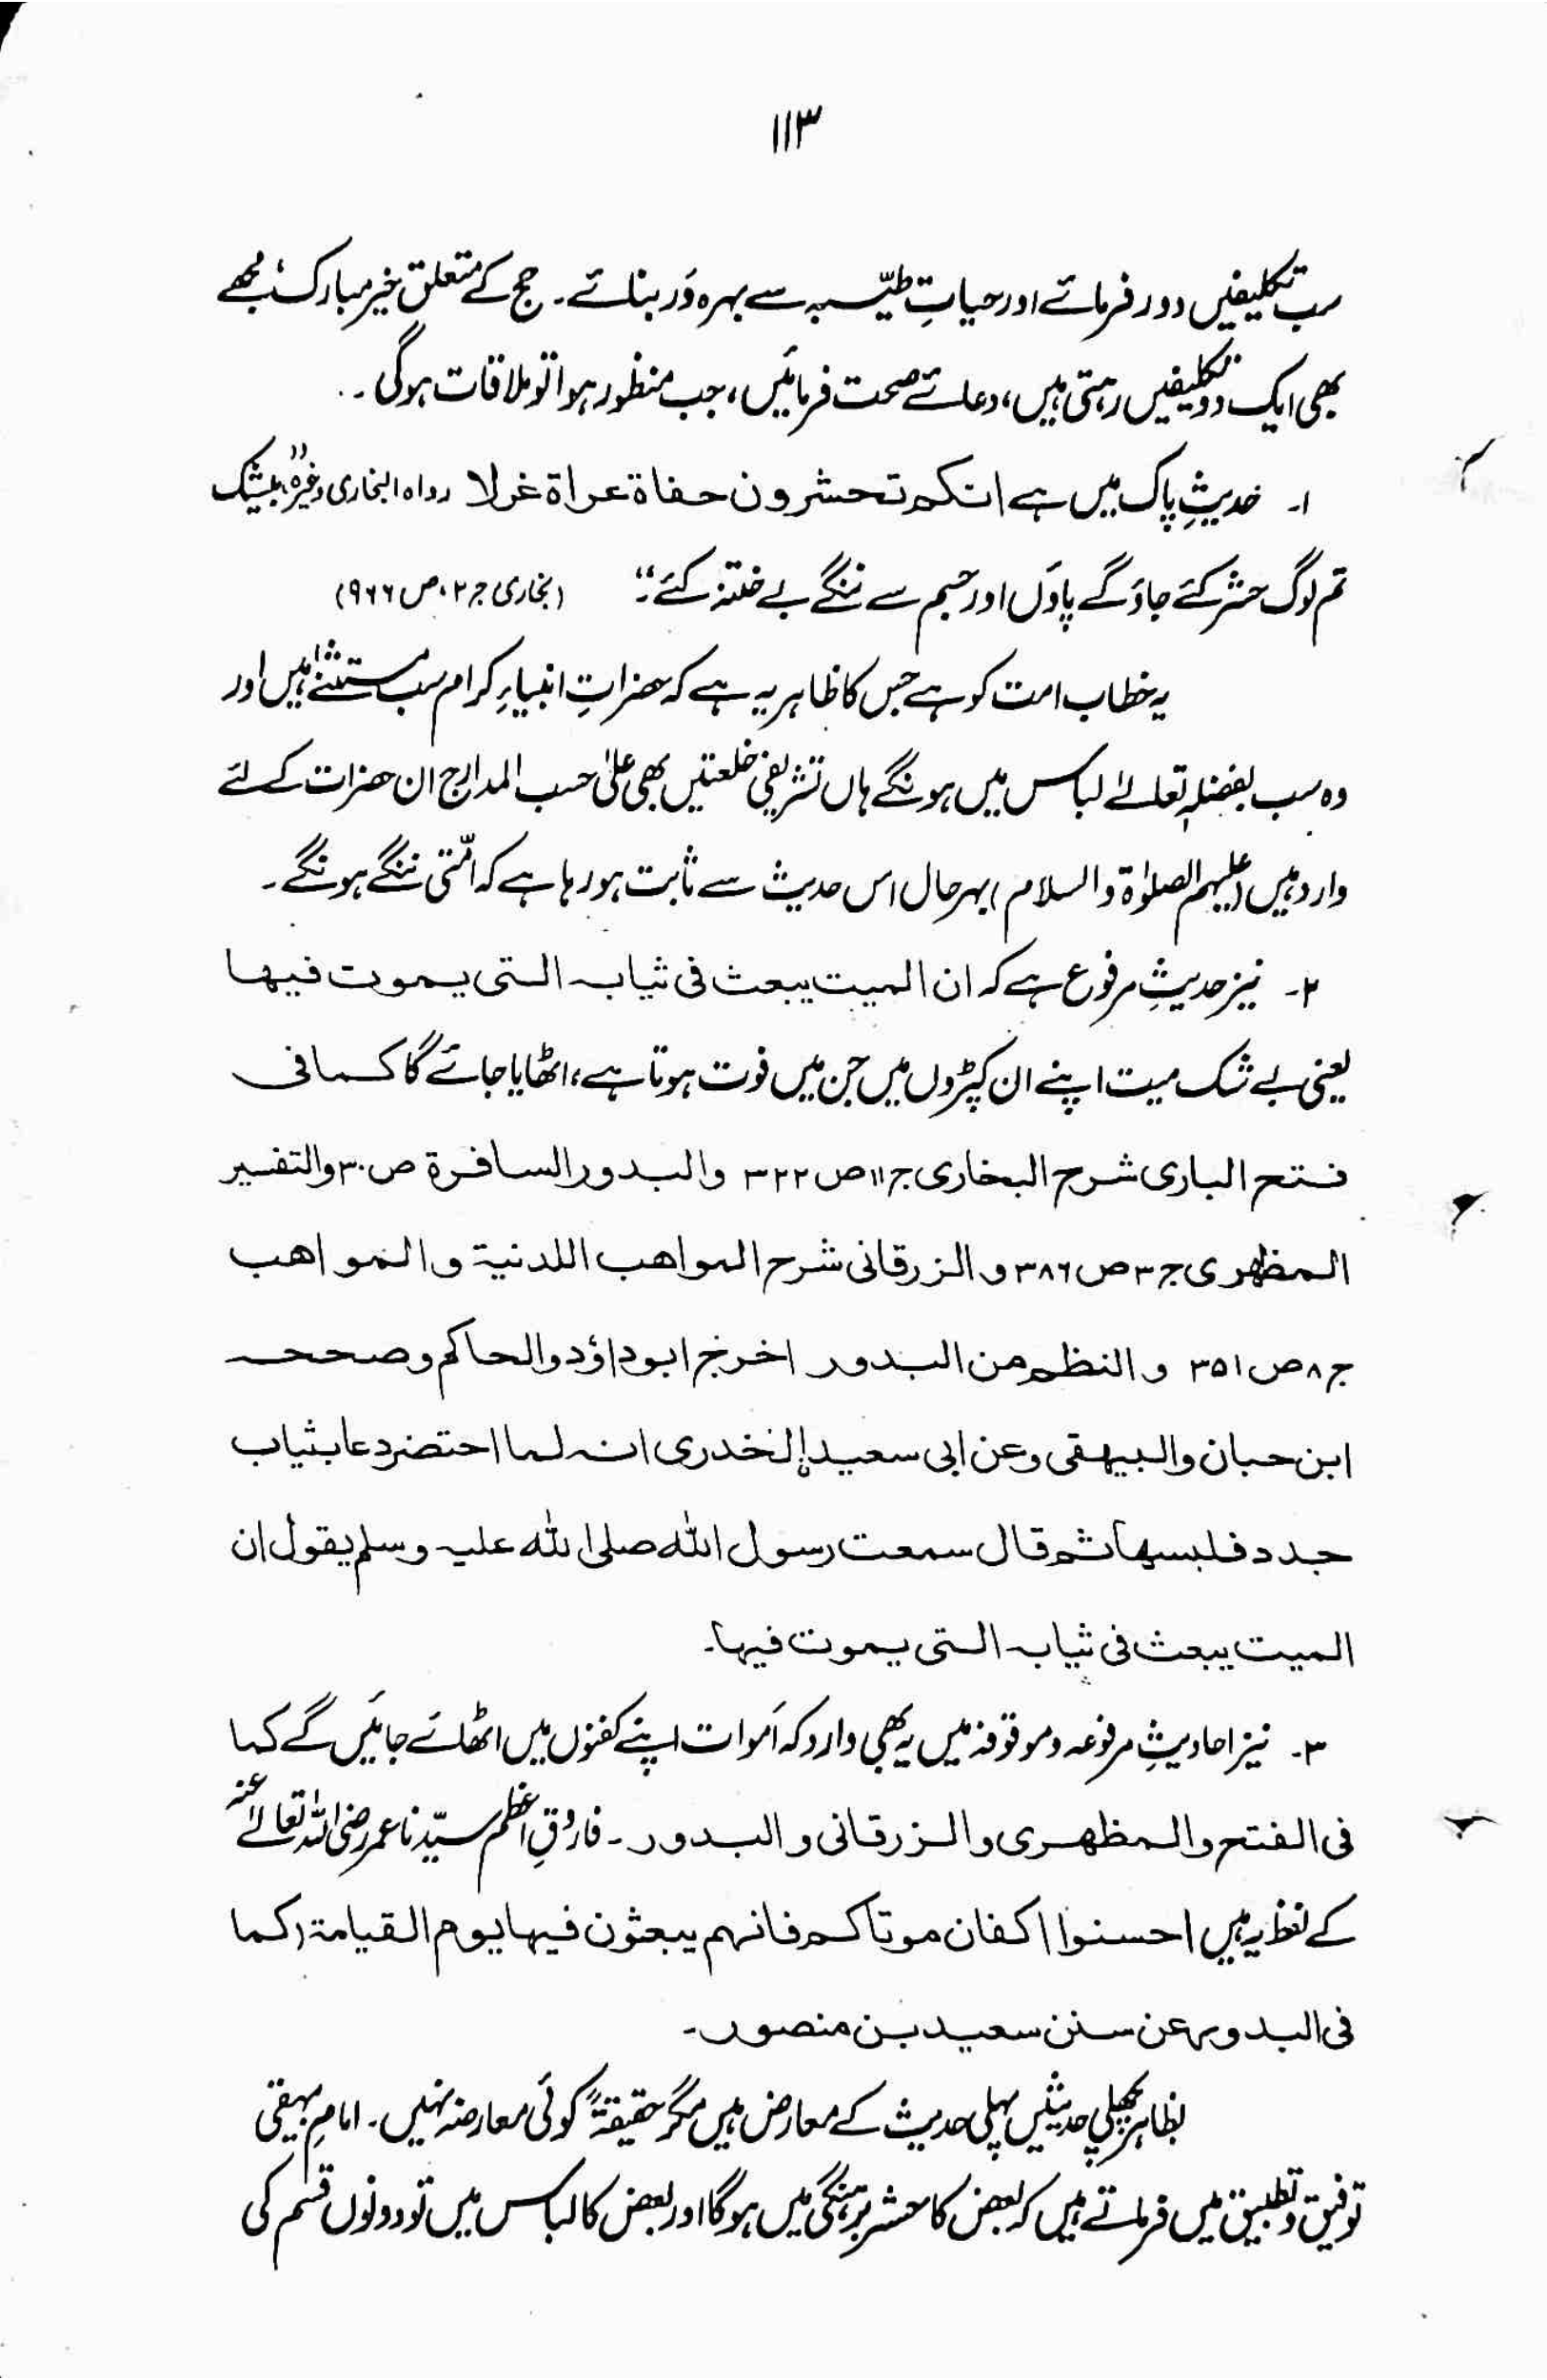 ۱۱۳
سب تکلیفیں دور فرمائے اور حیاتِ طیّبہ سے بہرہ وَر بنائے۔ حج کے متعلق خیر مبارک، مجھے
بھی ایک دو تکلیفیں رہتی ہیں، دعائے صحت فرمائیں، جب منظور ہوا تو ملاقات ہوگی۔
۱۔ حدیثِ پاک میں ہے انکم تحشرون حفاة عراة غرلا رواہ البخاری وغیرہ "بیشک
تم لوگ حشر کئے جاؤ گے پاؤں اور جسم سے ننگے بے ختنہ کئے"۔ (بخاری ج۲، ص۹۶۶)
یہ خطاب امت کو ہے جس کا ظاہر یہ ہے کہ حضراتِ انبیاءِ کرام سب مستثنےٰ ہیں اور
وہ سب بفضلہٖ تعالےٰ لباس میں ہونگے ہاں تشریفی خلعتیں بھی علیٰ حسب المدارج ان حضرات کے لئے
وارد ہیں (علیہم الصلوٰۃ والسلام) بہرحال اس حدیث سے ثابت ہو رہا ہے کہ امّتی ننگے ہونگے۔
۲۔ نیز حدیثِ مرفوع ہے کہ ان المیت یبعث فی ثیابہ التی یموت فیھا
یعنی بے شک میت اپنے ان کپڑوں میں جن میں فوت ہوتا ہے، اٹھایا جائے گا کما فی
فتح الباری شرح البخاری ج۱۱ ص۳۲۲ والبدور السافرة ص۳۰ والتفسیر
المظھری ج۳ ص۳۸۶ و الزرقانی شرح المواھب اللدنیة والمواھب
ج۸ ص۳۵۱ و النظم من البدور اخرج ابوداؤد والحاکم وصححہ
ابن حبان والبیھقی وعن ابی سعید الخدری انہ لما احتضر دعا بثیاب
جدد فلبسھا ثم قال سمعت رسول اللّٰہ صلی اللّٰہ علیہ وسلم یقول ان
المیت یبعث فی ثیابہ التی یموت فیھا۔
۳۔ نیز احادیثِ مرفوعہ وموقوفہ میں یہ بھی وارد کہ اَموات اپنے کفنوں میں اٹھائے جائیں گے کما
فی الفتح والمظھری والزرقانی والبدور۔ فاروقِ اعظم سیّدنا عمر رضی اللہ تعالےٰ عنہ
کے لفظ یہ ہیں احسنوا اکفان موتاکم فانہم یبعثون فیھا یوم القیامة (کما
فی البدور عن سنن سعید بن منصور۔
بظاہر پچھلی حدیثیں پہلی حدیث کے معارض ہیں مگر حقیقۃً کوئی معارضہ نہیں۔ امامِ بیہقی
توفیق و تطبیق میں فرماتے ہیں کہ بعض کا حشر برہنگی میں ہوگا اور بعض کا لباس میں تو دونوں قسم کی